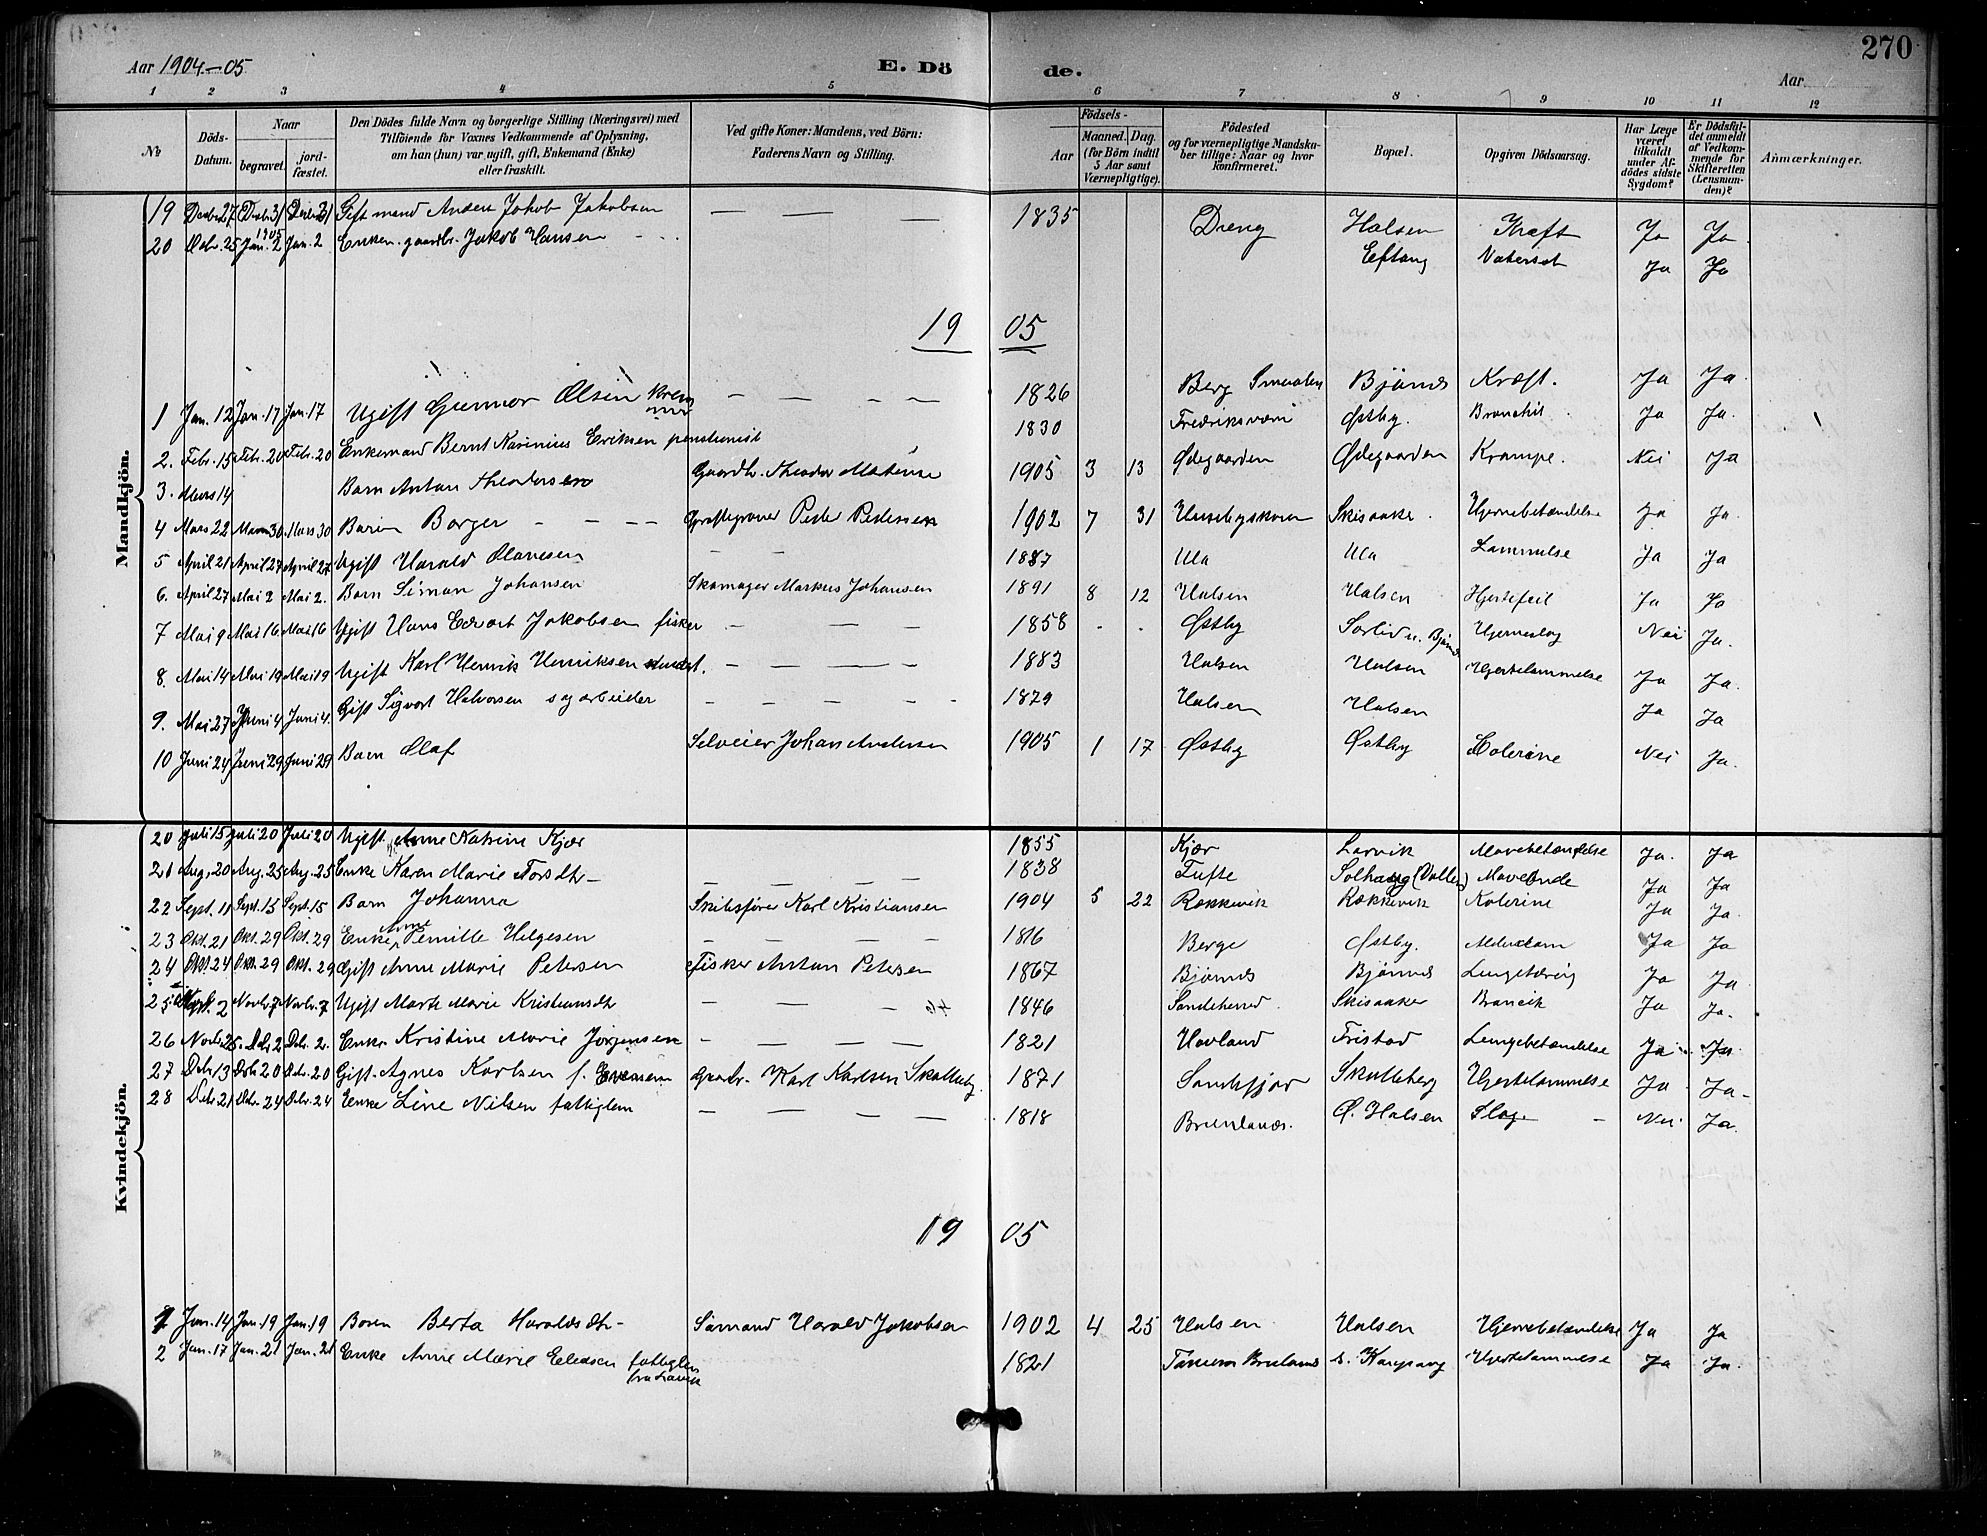 270
Aar 1904-05 E. Dö de. Aar
1 2 3 4 5 6 7 8 9 10 11 12
№ Döds-Datum. Naar begravet. jordfæstet. Den Dödes fulde Navn og borgerlige Stilling (Næringsvei) med Tilföiende for Voxnes Vedkommende af Oplysning, om han (hun) var ugift, gift, Enkemand (Enke) eller fraskilt. Ved gifte Koner: Mandens, ved Börn: Faderens Navn og Stilling. Födsels- Aar Maaned. Dag. (for Börn indtil 5 Aar samt Værnepligtige). Födested og for værnepligtige Mandskaber tillige: Naar og hvor konfirmeret. Bopæl. Opgiven Dödsaarsag. Har Læge været tilkaldt under Afdödes sidste Sygdom? Er Dödsfaldet anmeldt af Vedkommende for Skifteretten (Lensmanden)? Anmærkninger.
Mandkjön.
19 Decbr 27 Decbr 31 Decbr 31 Gift mand Anders Jakob Jakobsen — — — 1835 Dreng Halsen Kræft Ja Ja
20 Decbr. 25 1905 Jan. 2 Jan. 2 Enkem. gaardbr. Jakob Hansen Eftang Vatersot Ja Ja
19 05
1 Jan. 12 Jan. 17 Jan. 17 Ugift Gunnar Olsen — — — 1826 Berg Bjønnes Kræft. Ja Ja
2. Febr. 15 Febr. 20 Febr. 20 Enkemand Bernt Karinius Eriksen pensionist 1830 Fredriksværn Østby. Bronchit Ja Ja.
3. Mars 14 Barn Anton Theodorsen Gaardbr. Theodor 1905 3 13 Ødegaarden Ødegaarden Krampe. Nei Ja
4 Mars 22 Mars 30 Mars 30 Barn Borger — — — Grøftegraver Peder Pedersen 1902 7 31 Skisaaker. Hjernebetændelse Ja Ja.
5 April 21 April 27 April 27 Ugift Harald Olavesen — — 1887 Ula Ula Lammelse Ja Ja
6. April 27 Mai 2 Mai 2. Barn Simon Johansen Skomager Markus Johansen 1891 8 12 Halsen Halsen Hjertefeil Ja Ja
7 Mai 9 Mai 16 Mai 16 Ugift Hans Edvart Jakobsen fisker — — — 1858 . . Østby Hjerneslag Nei Ja.
8. Mai 14 Mai 19 Mai 19 Ugift Karl Henrik Henriksen — — — 1883 Halsen Halsen Hjertelammelse Ja Ja.
9. Mai 27 Juni 4 Juni 4. Gift Sigvart Halvorsen sagarbeider — — — 1879 Halsen Halsen Ja Ja
10 Juni 24 Juni 29 Juni 29 Barn Olaf Selveier Johan Andersen 1905 1 17 Østby Østby Colerine Nei Ja.
Kvindekjön.
20 Juli 15 Juli 20 Juli 20 Ugift Anne Katrine Kjær 1855 Kjær Larvik Mavebetændelse Ja. Ja
21 Aug. 20 Aug. 25 Aug. 25 Enke Karen Marie Forsdtr — — — — 1838 Tufte Solhaug Maveonde Ja Ja
22 Sept. 11 Sept. 15 Sept. 15 Barn Johanna Skibsfører Karl Kristiansen 1904 5 22 Rækkevik Rækkevik Kolerine Ja Ja.
23 Okt. 21 Okt. 29 Okt. 29 Enke Anne Pernille Helgesen — — — — 1816 Berge Østby. Alderdom Ja Ja
24 Okt. 24 Okt. 29 Okt. 29 Gift Anne Marie Petersen Fisker Anton Petersen 1867 Bjønnes Bjønnes Lungetæring Ja Ja
25 2 Novbr. 7 Novbr. 7 Ugift Marte Marie Kristiansdtr — — — 1846 Sandeherred Skisaaker Ja Ja.
26 Novbr. 25. Dcbr 2 Dcbr. 2. Enke Kristine Marie Jørgensen — — — — 1821 Hovland Fristad Lungebetændelse Ja Ja
27 Dcbr 13 Dcbr 20 Dcbr. 20 Gift. Agnes Karlsen f. Evensen Gaardbr. Karl Karlsen Skalleberg 1871 Sandefjor Skalleberg Hjertelammelse Ja Ja—
28 Dcbr. 21 Dcbr 24 Dcbr. 24 Enke Line Nilsen fattiglem — — — — 1818 Brunlanæs. Ø. Halsen Slag. — Nei Ja.
19 05
1 Jan. 14 Jan. 19 Jan. 19 Barn Berta Haraldsdtr— Sømand Harald Jakobsen 1902 4 25 Halsen Halsen Hjernebetændelse Ja Ja
2 Jan. 17 Jan. 21 Jan. 21 Enke Anne Marie fattiglem fra Larvik 1821 Hjertelammelse Ja Ja.